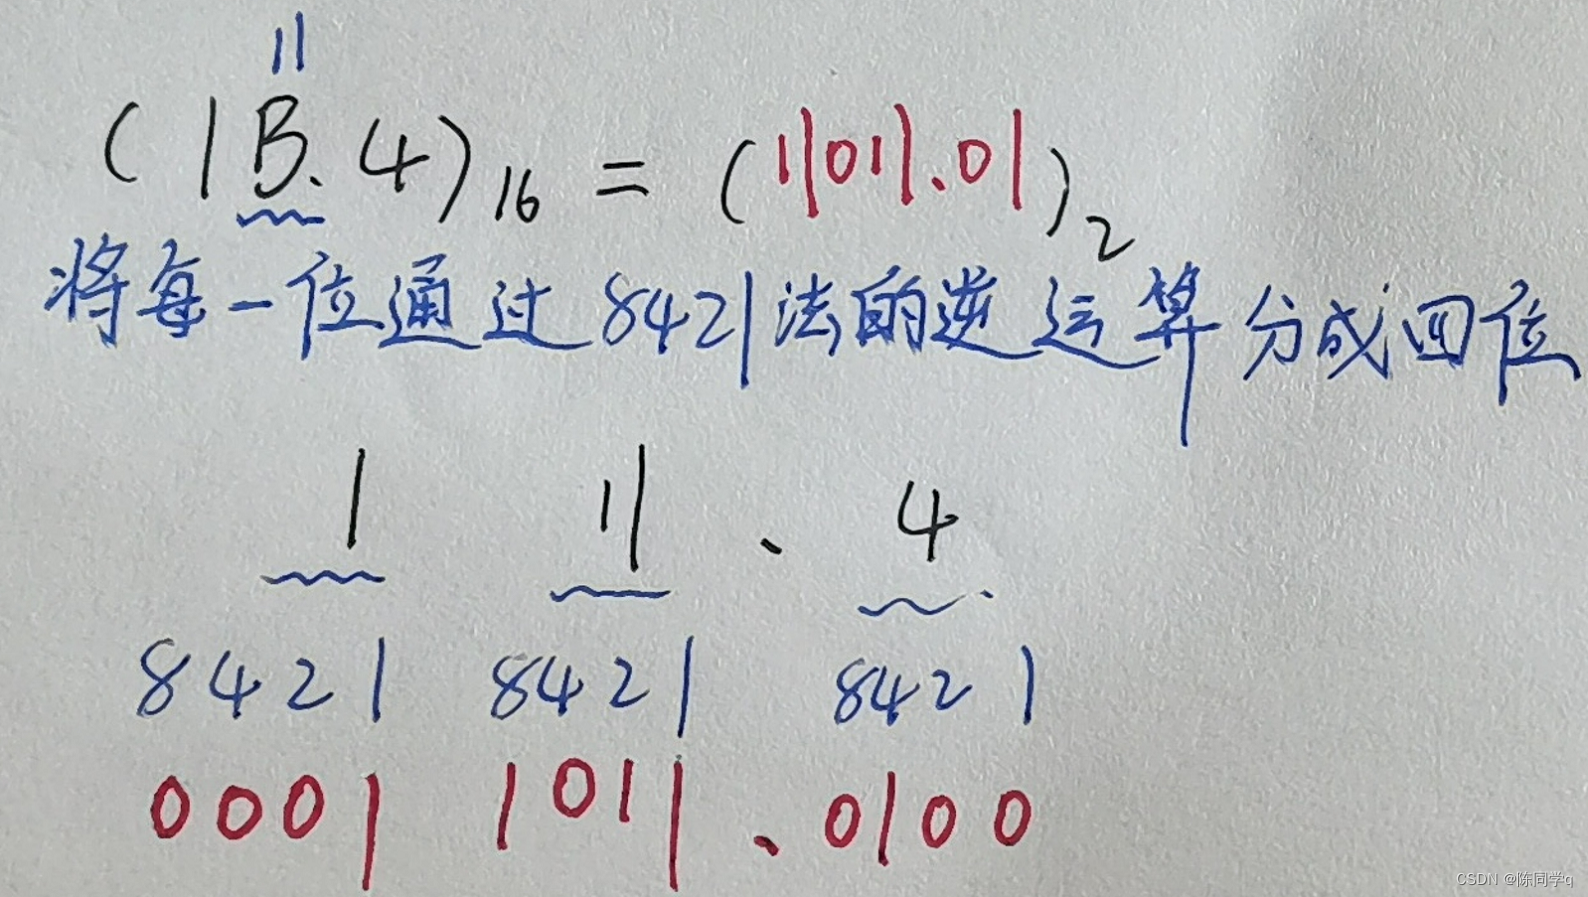 11
(1B.4)16=(11011.01)2
将每一位通过8421法的逆运算分成四位
1 11 . 4
8421 8421 8421
0001 1011 . 0100
CSDN @陈同学q